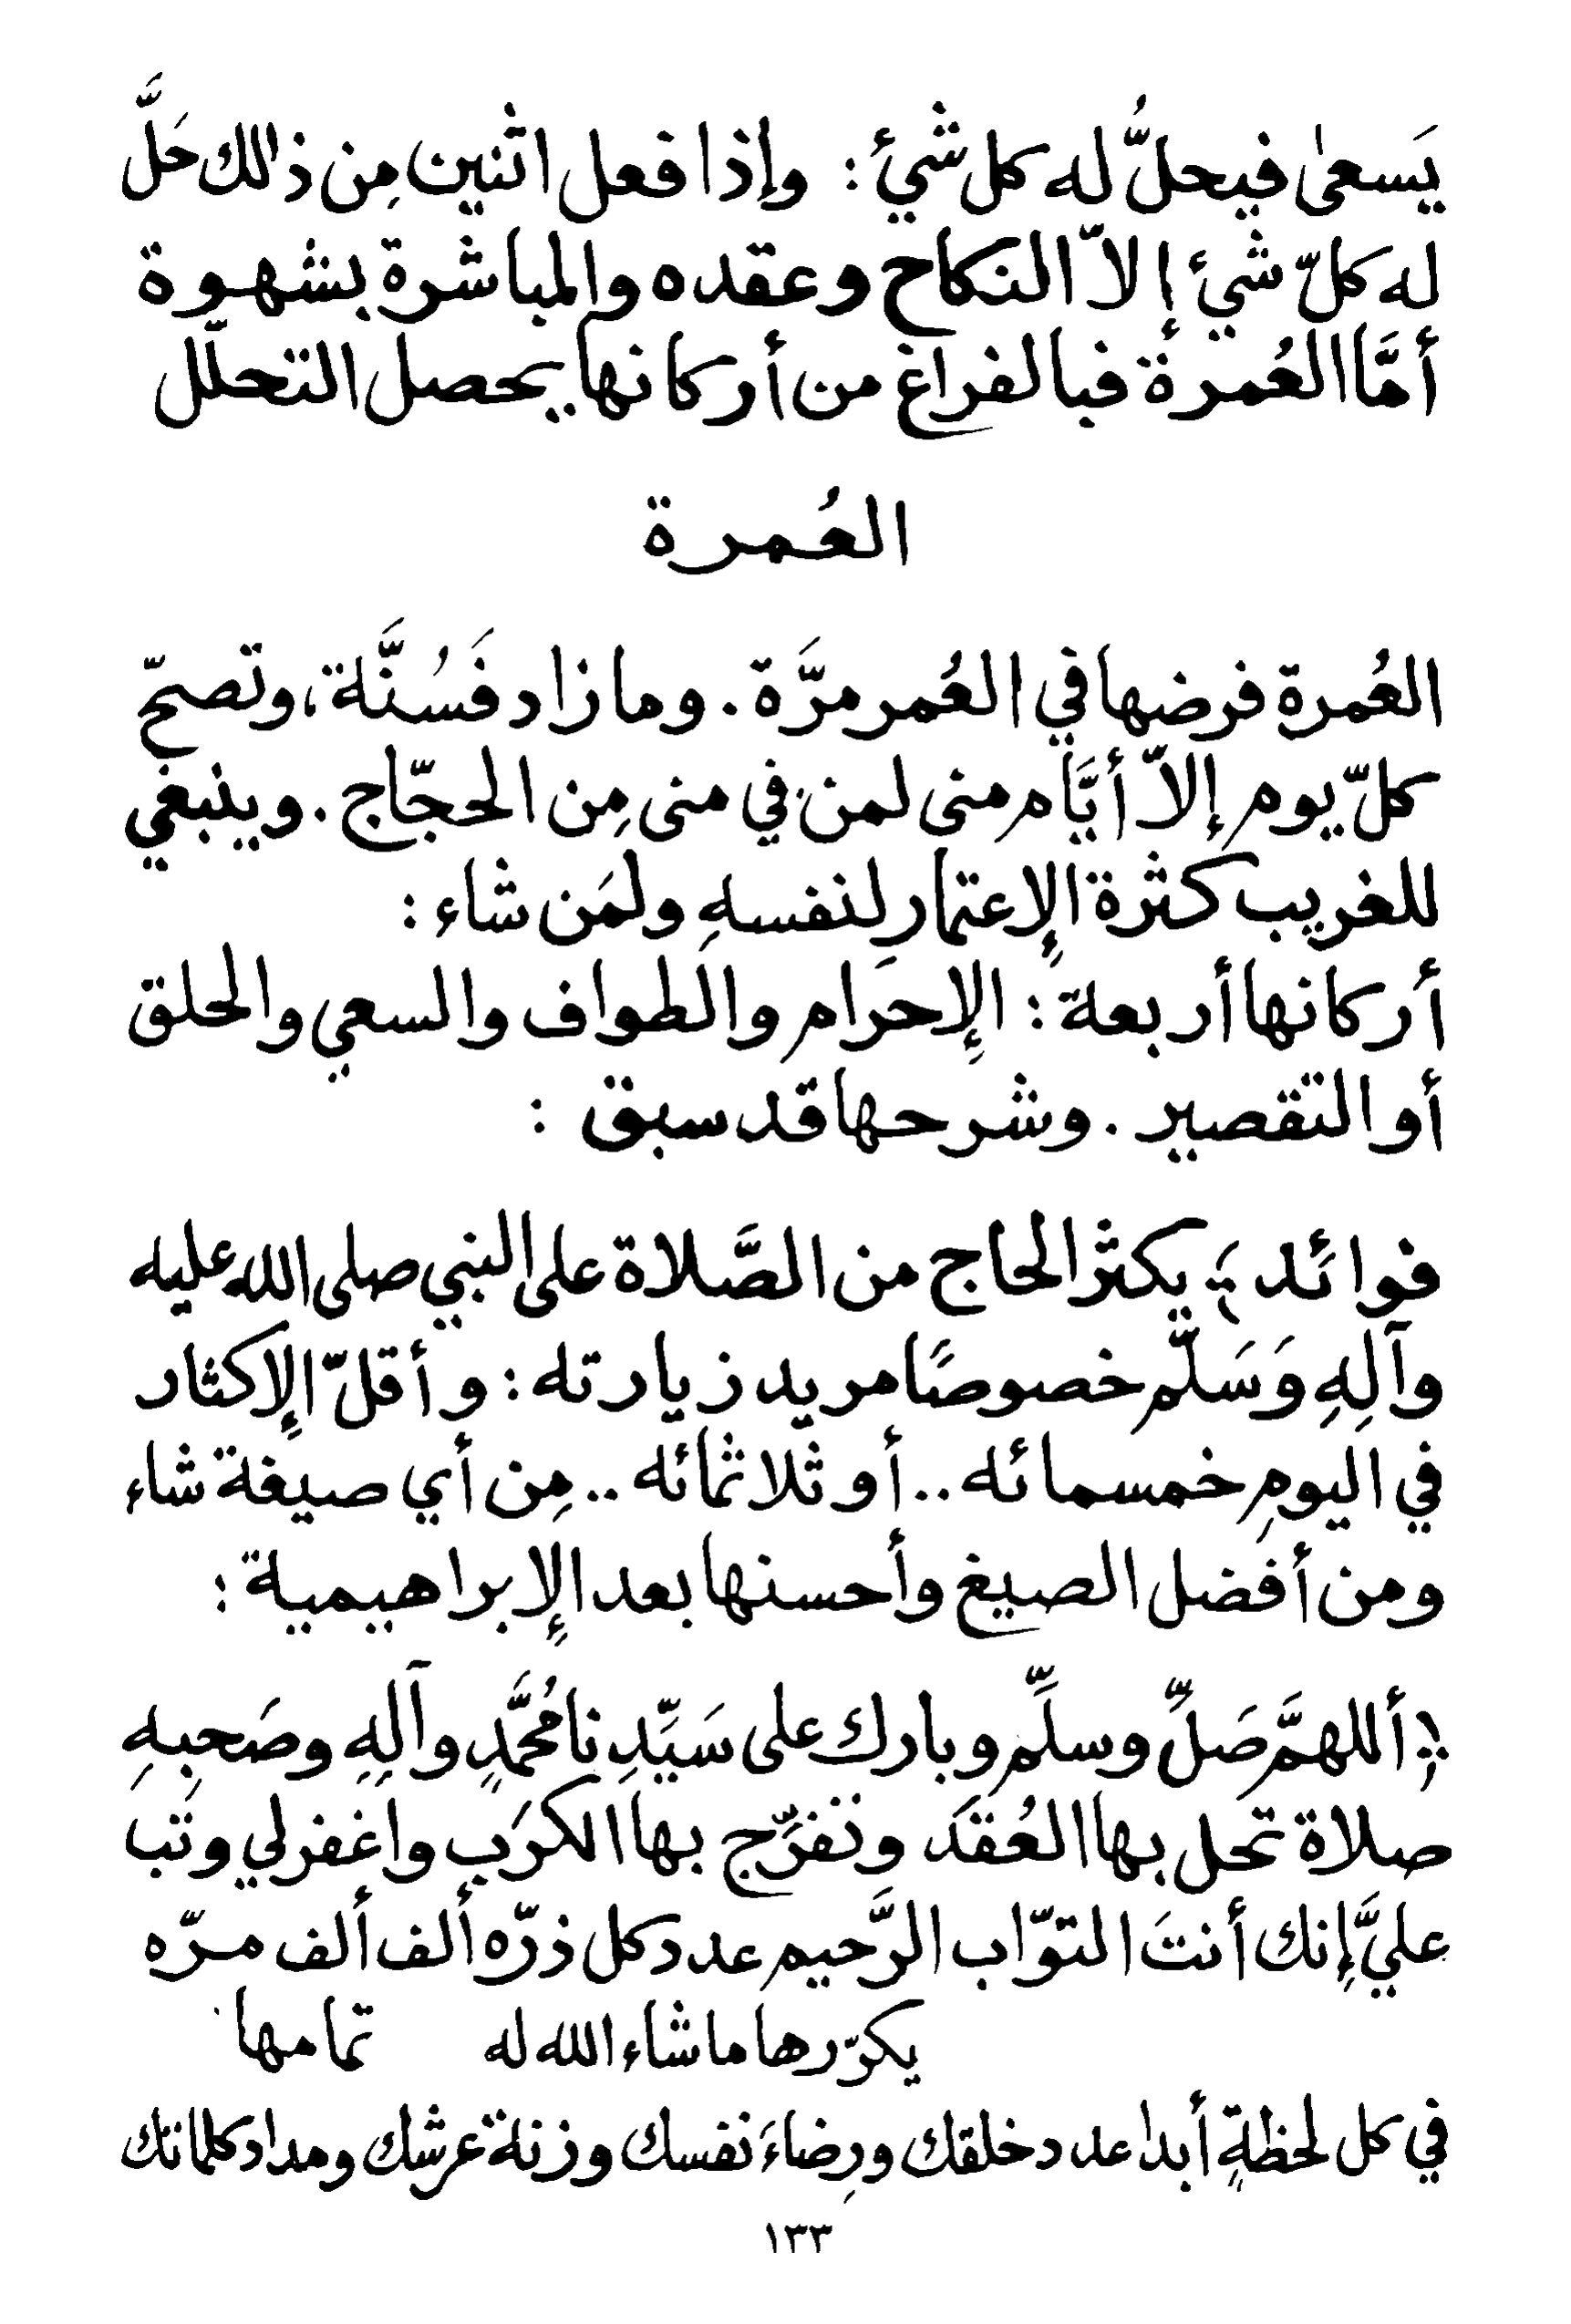 يَسعىٰ فيحلُّ له كل شيئ : وإذا فعل اثنين مِن ذالك حَلَّ
له كلّ شيئ إلاّ النكاح وعقده والمباشرة بشهوة
أمَّا العُمرة فبالفراغ من أركانها يحصل التحلّل
العُمرة
العُمرة فرضها في العُمر مرَّة . وما زاد فَسُنَّة ، وتصحّ
كلّ يوم إلاّ أيَّام منى لمن في منى مِن الحجّاج . وينبغي
للغريب كثرة الإعتمار لِنفسهِ ولمَن شاء :
أركانها أربعة : الإحرَام والطواف والسعي والحلق
أو التقصير . وشرحها قد سبق :
فوائد ؛ يكثر الحاج من الصَّلاة على النبي صلى الله عليه
وآلِهِ وَسَلَّم خصوصًا مريد زيارته : وأقلّ الإكثار
في اليومِ خمسمائه .. أو ثلاثمائه .. مِن أي صيغة شاء
ومن أفضل الصيغ وأحسنها بعد الإبراهيمية :
أللهمَّ صَلِّ وسلِّم وبارك على سَيِّدِنا مُحمَّدٍ وآلِهِ وصَحبِهِ
صلاة تحل بها العُقَد وتفرِّج بها الكرَب واغفر لي وتب
عليَّ إنك أنتَ التوّاب الرَّحيم عدد كل ذرّه ألف ألف مرّه
يكرّرها ما شاء الله له تمامها
في كل لحظةٍ أبدا عدد خلقك ورِضاءَ نفسك وزنة عرشك ومداد كلماتك
١٣٣